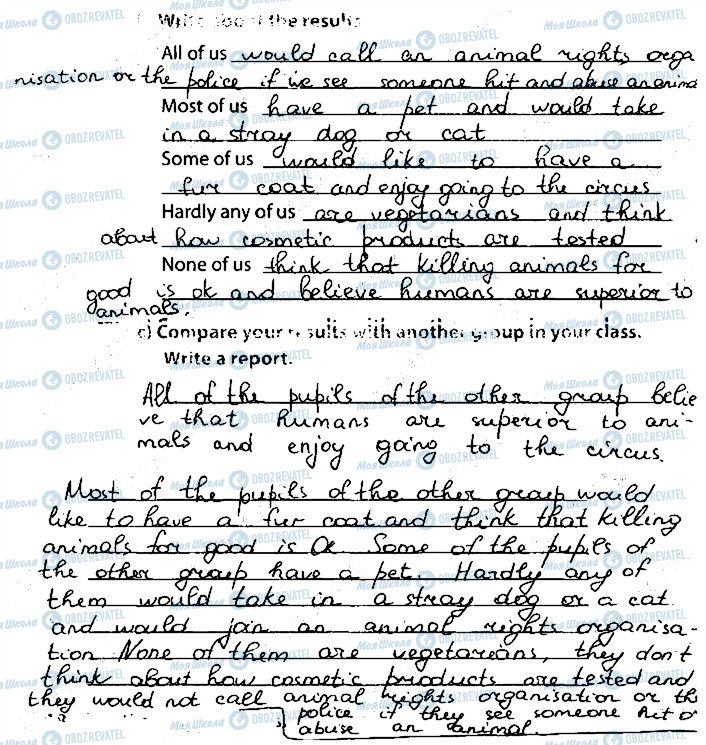 Write about the results
All of us would call an animal rights orga
nisation or the police if we see someone hit and abuse an anima
Most of us have a pet and would take
in a stray dog or cat
Some of us would like to have a
fur coat and enjoy going to the circus
Hardly any of us are vegetarians and think
about how cosmetic products are tested
None of us think that killing animals for
good is ok and believe humans are superior to
animals.
c) Compare your results with another group in your class.
Write a report.
All of the pupils of the other group belie
ve that humans are superior to ani-
mals and enjoy going to the circus.
Most of the pupils of the other group would
like to have a fur coat and think that killing
animals for good is Ok Some of the pupils of
the other group have a pet. Hardly any of
them would take in a stray dog or a cat
and would join an animal rights organisa-
tion None of them are vegetarians, they don't
think about how cosmetic products are tested and
they would not call animal rights organisation or th
police if they see someone hit or
abuse an animal.
Моя Школа OBOZREVATEL